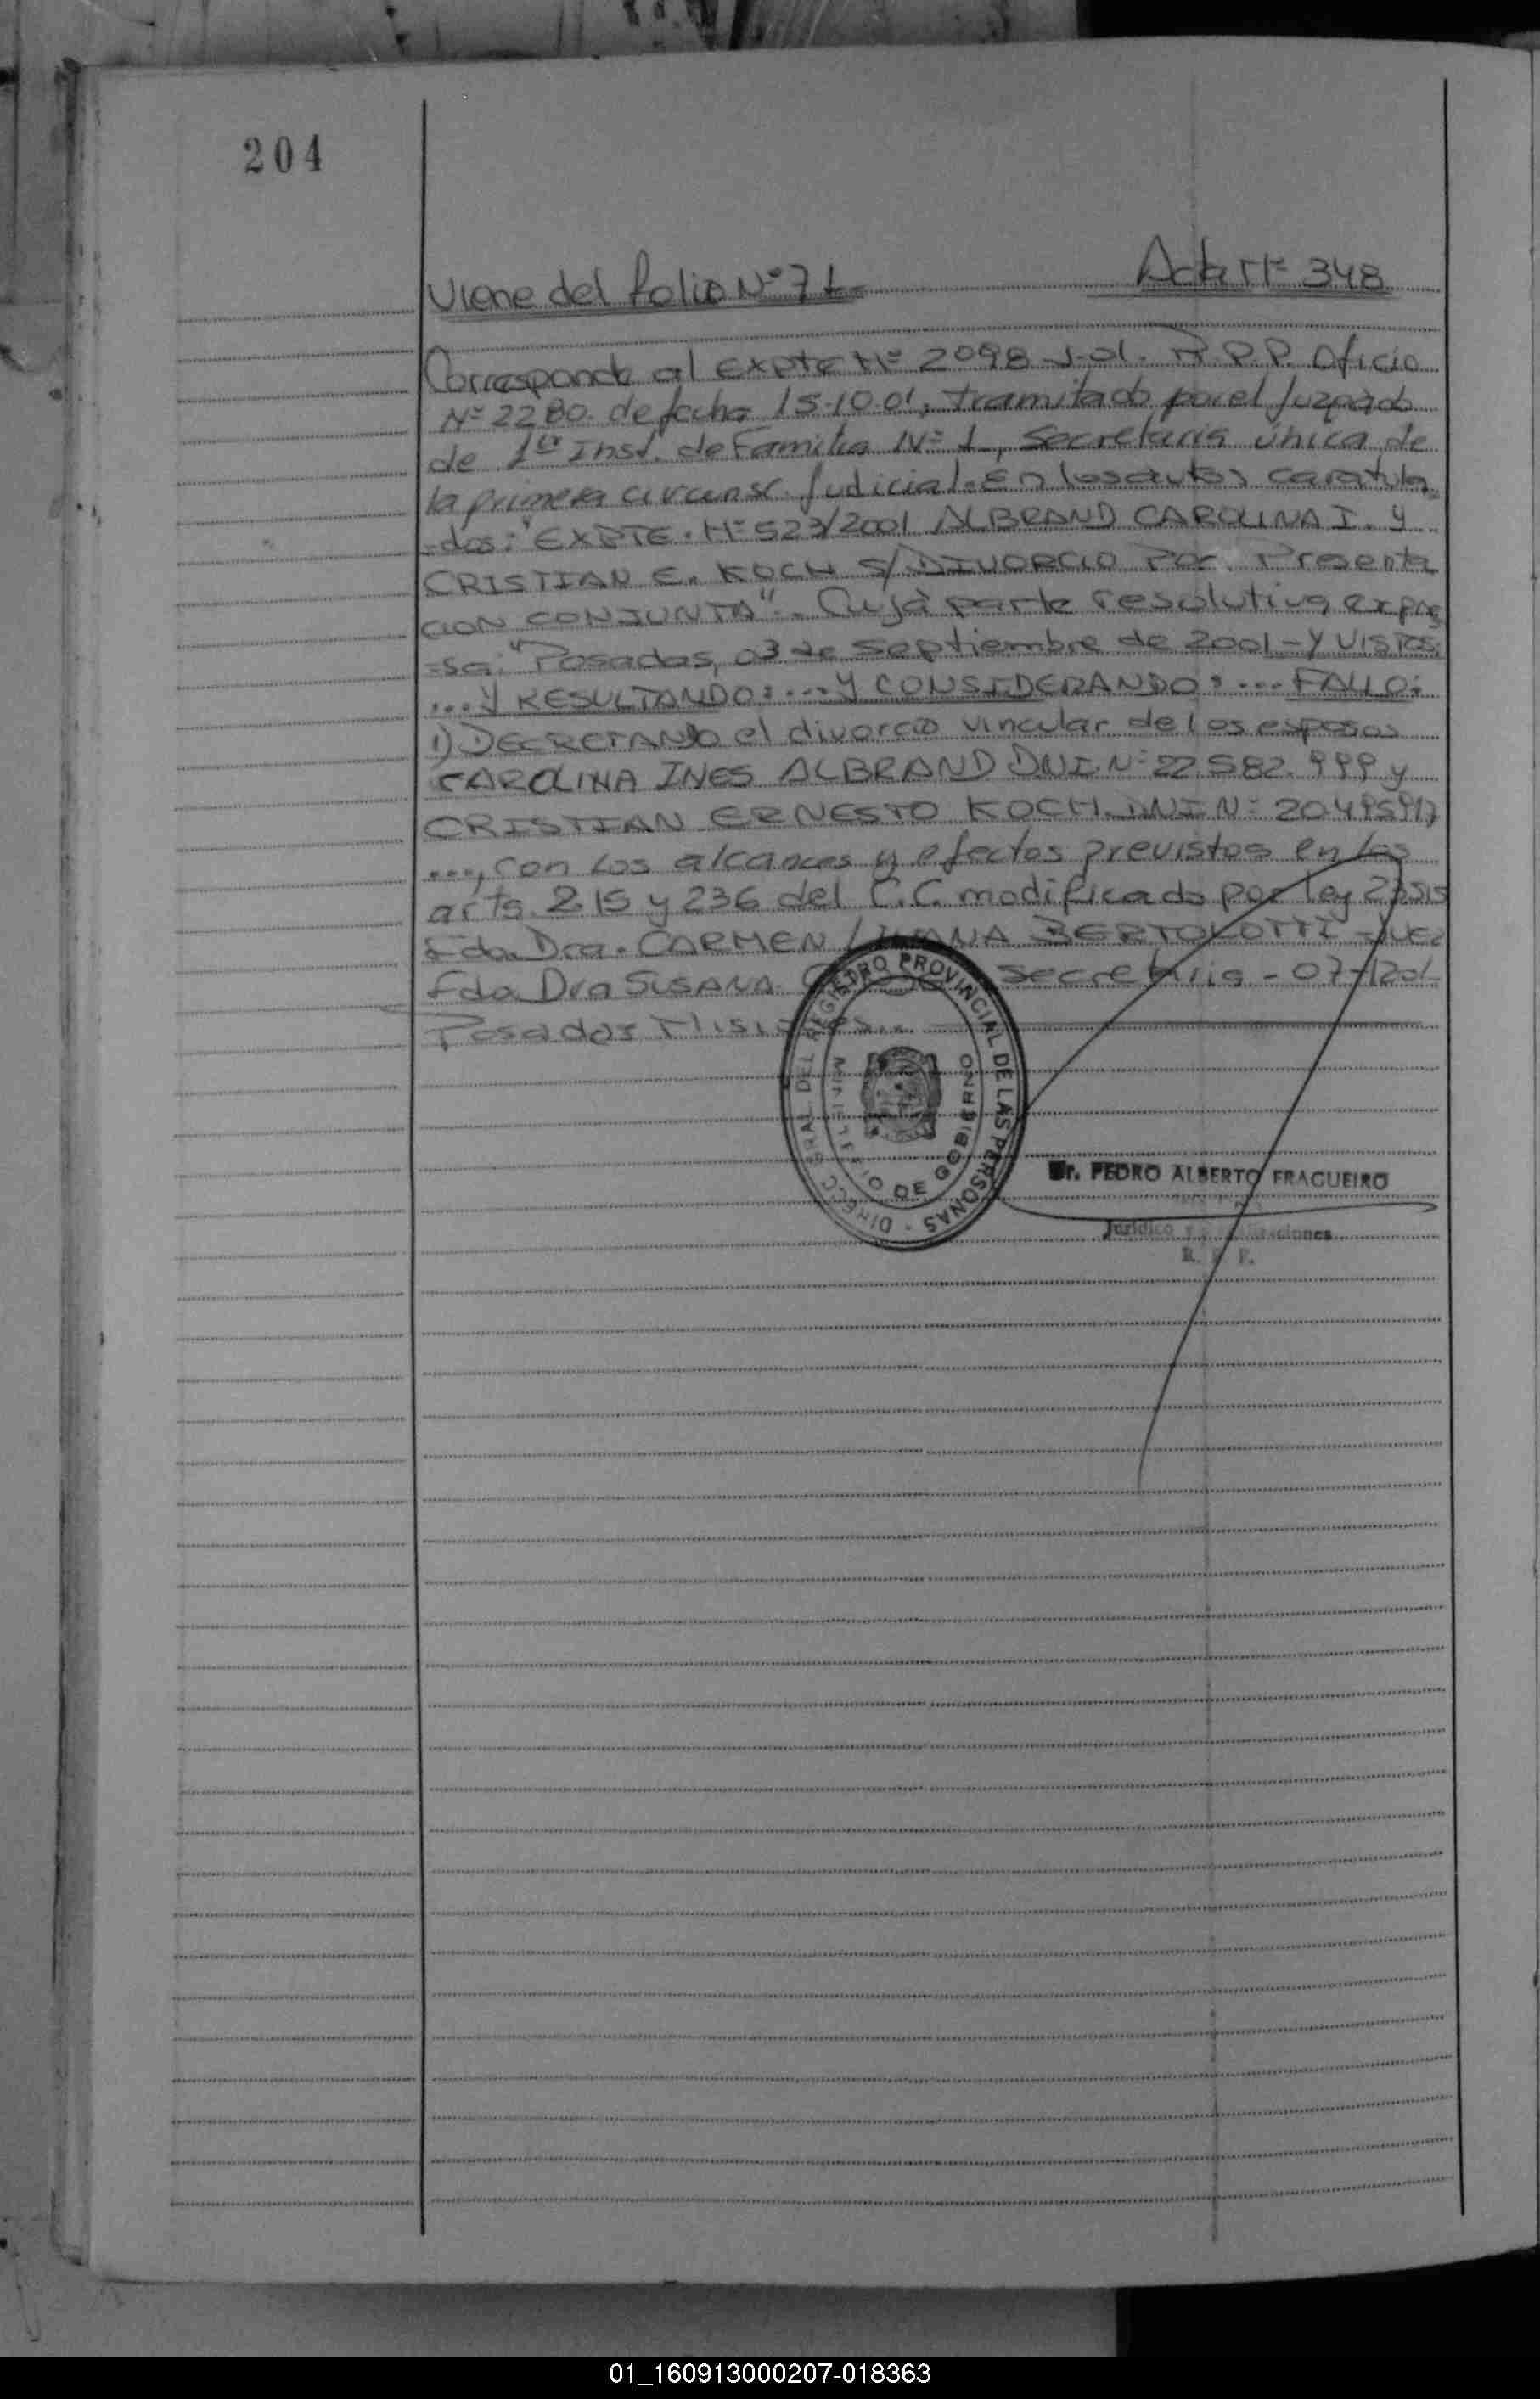 204
Viene del folio Nº 71
Acta Nº 348
Corresponde al Expte Nº 2098-J-01. R.P.P. Oficio
Nº 2280 de fecha 15-10-01, tramitado por el Juzgado
de 1ra Inst. de Familia Nº 1, Secretaria Única de
la primera circunsc. Judicial. En los autos caratula
-dos: "EXPTE. Nº 523/2001 ALBRAND CAROLINA I. y
CRISTIAN E. KOCH S/DIVORCIO Por Presenta
CION CONJUNTA".- Cuya parte resolutiva expre
-sa: "Posadas, 03 de Septiembre de 2001 - Y VISTOS:
...Y RESULTANDO: ... Y CONSIDERANDO: ... FALLO:
1) DECRETANDO el divorcio vincular de los esposos
CAROLINA INES ALBRAND DNI. Nº 22.582.999 y
CRISTIAN ERNESTO KOCH DNI Nº
..., con los alcances y efectos previstos en los
arts. 215 y 236 del C.C. modificado por ley 23515
Fdo. Dra. CARMEN BERTOLOTTI - JUEZ
Fdo. Dra SUSANA Secretaria - 07-
Posadas Misiones..
DIRECC GRAL DEL REGISTRO PROVINCIAL DE LAS PERSONAS
MINISTERIO DE GOBIERNO
Dr. PEDRO ALBERTO FRAGUEIRO
Jurídico
01_160913000207-018363